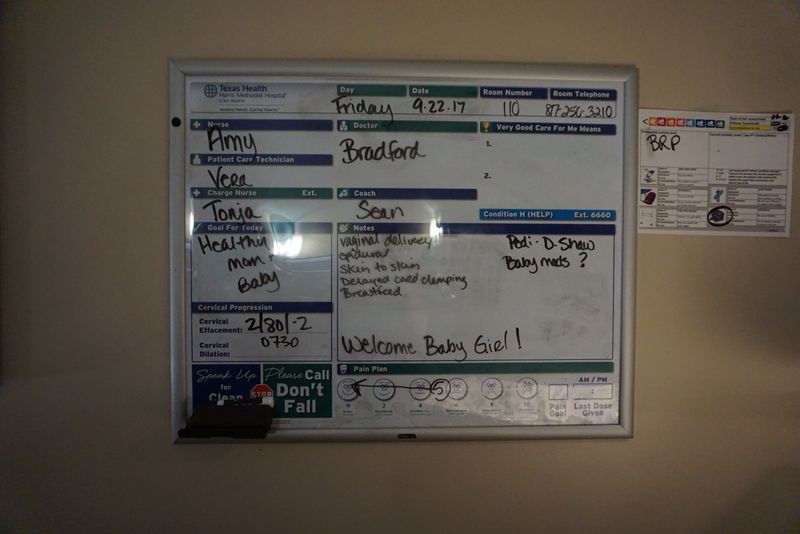 Texas Health
Harris Methodist Hospital
FORT WORTH
Healing Hands. Caring Hearts.
Day
Date
Room Number
Room Telephone
Friday
9.22.17
110
817-250-3210
Nurse
Amy
Doctor
Bradford
Very Good Care For Me Means
1.
2.
Patient Care Technician
Vera
Charge Nurse Ext.
Tonja
Coach
Sean
Condition H (HELP) Ext. 6660
Goal For Today
Healthy
mom +
Baby
Notes
vaginal delivery
epidural
Skin to skin
Delayed cord clamping
Breastfeed
Pedi - D. Shaw
Baby meds ?
Welcome Baby Girl !
Cervical Progression
Cervical
Effacement:
2/80/-2
Cervical
Dilation:
0730
Speak Up
for
Clean
STOP
Please Call
Don't
Fall
Pain Plan
0
2
4
5
6
8
10
Pain
Goal
AM / PM
:
Last Dose
Given
BRP